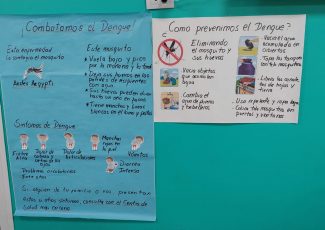 ¡Combatamos el Dengue!
Esta enfermedad
la contagia el mosquito
Aedes Aegypti
Este mosquito
Vuela bajo y pica
por la mañana y la tarde
Deja sus huevos en las
paredes de recipientes
con agua
Sus huevos pueden durar
hasta un año en seco
Tiene manchas y líneas
blancas en el lomo y patas
Síntomas de Dengue
Fiebre
Alta
Dolor de
cabeza y
Dolor de
Articulaciones
Manchas
rojas en
la piel
Vómitos
Diarrea
Intensa
Problema circulatorios
Si alguien de tu familia o vos presentan
estos u otros síntomas, consulte con el Centro de
Salud más cercano
¿Como prevenimos el Dengue?
Eliminando
el mosquito y
sus huevos
Vacía objetos
que acumulen
agua
Cambia el
agua de floreros
y bebederos
Vaciar el
agua acumulada en
cubiertas
Tapar los tanques
Libera las canaletas
de hojas y
tierra
Usa repelente y ropa
Coloca tela mosquitera en
puertas y ventanas